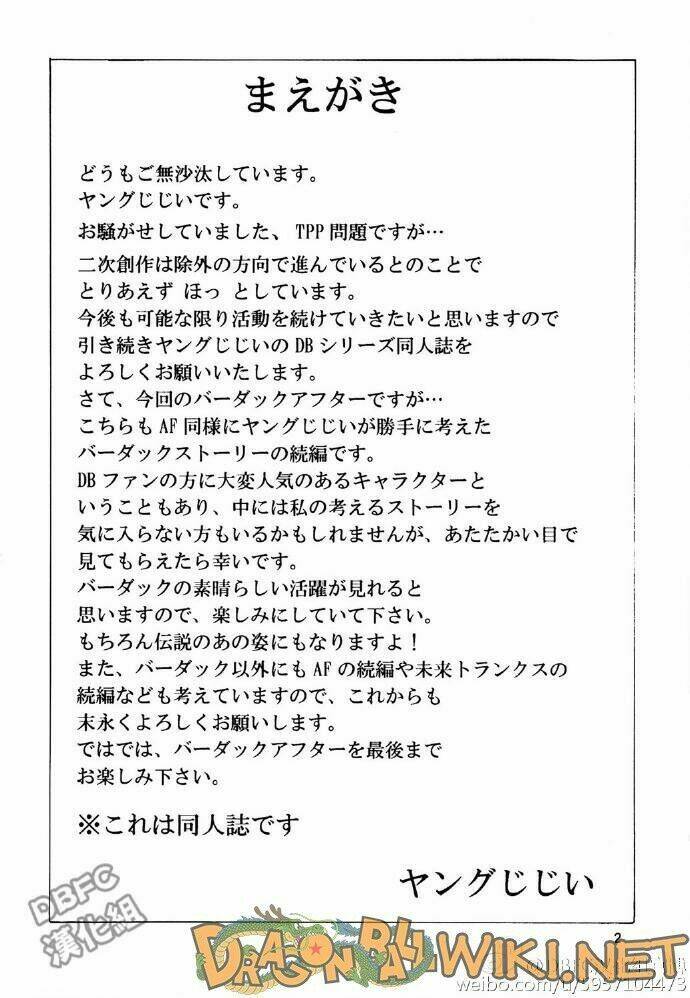 まえがき
どうもご無沙汰しています。
ヤングじじいです。
お騒がせしていました、TPP問題ですが…
二次創作は除外の方向で進んでいるとのことで
とりあえず ほっ としています。
今後も可能な限り活動を続けていきたいと思いますので
引き続きヤングじじいのDBシリーズ同人誌を
よろしくお願いいたします。
さて、今回のバーダックアフターですが…
こちらもAF同様にヤングじじいが勝手に考えた
バーダックストーリーの続編です。
DBファンの方に大変人気のあるキャラクターと
いうこともあり、中には私の考えるストーリーを
気に入らない方もいるかもしれませんが、あたたかい目で
見てもらえたら幸いです。
バーダックの素晴らしい活躍が見れると
思いますので、楽しみにしていて下さい。
もちろん伝説のあの姿にもなりますよ！
また、バーダック以外にもAFの続編や未来トランクスの
続編なども考えていますので、これからも
末永くよろしくお願いします。
ではでは、バーダックアフターを最後まで
お楽しみ下さい。
※これは同人誌です
ヤングじじい
DBFC
漢化組
2
DRAGONBALLWIKI.NET
weibo.com/u/3957104473